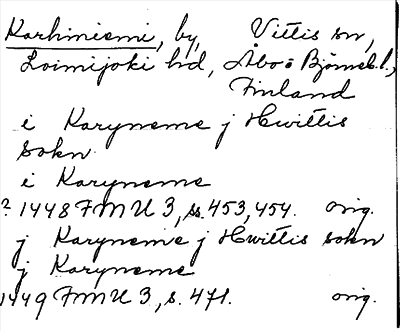 Karhiniemi, by, Vittis sn,
Loimijoki hd, Åbo o Björneb. l.,
Finland
i Karyneme j Hwittis
sokn
i Karyneme
? 1448 FMU 3, ss. 453, 454. orig.
j Karyneme j Hwittis sokn
j Karyneme
1449 FMU 3, s. 471. orig.